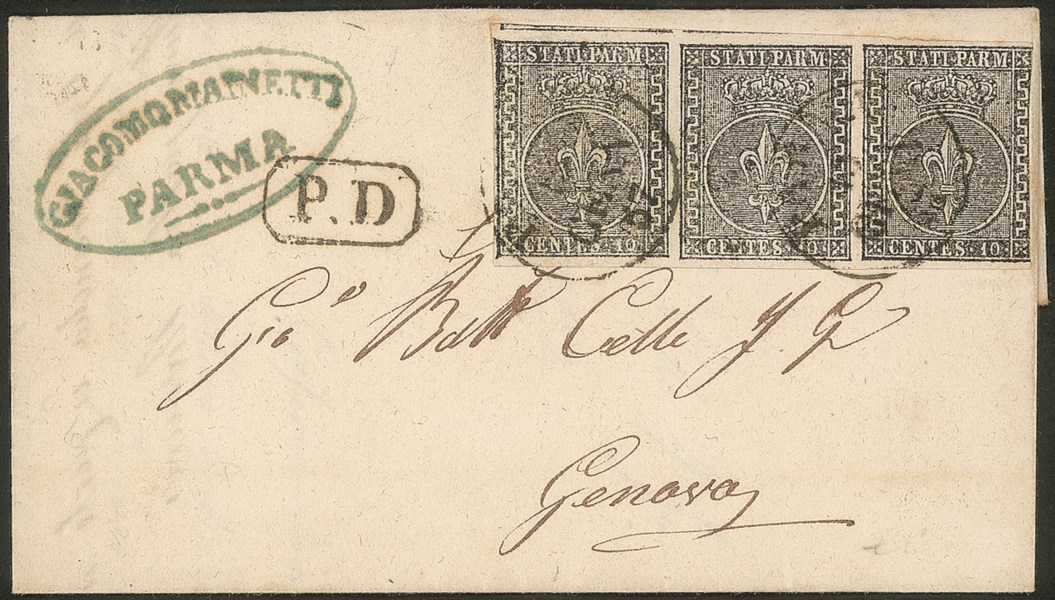 GIACOMO MAINETTI
PARMA
P.D
STATI PARM
CENTES. 10
STATI PARM
CENTES. 10
STATI PARM
CENTES. 10
Gio Batt Celle
Genova